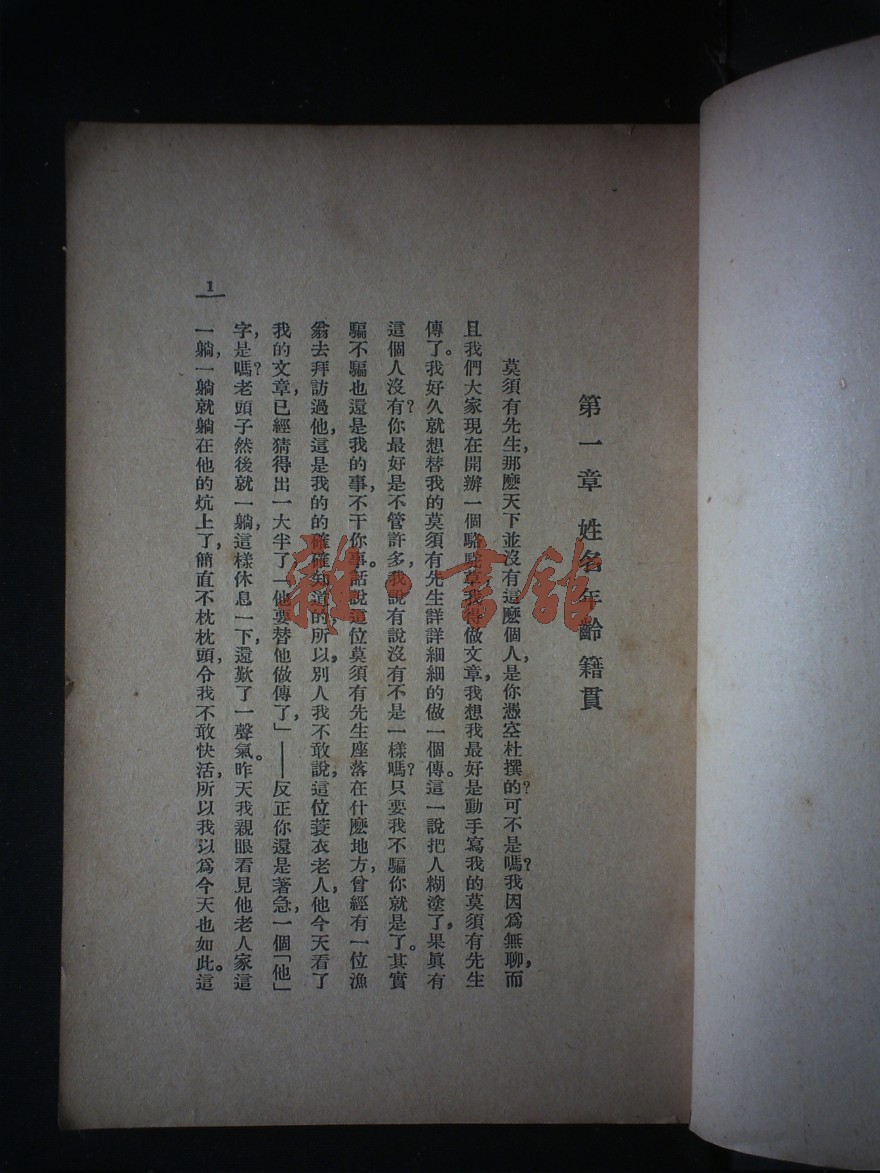 第一章 姓名年齡籍貫
莫須有先生，那麽天下並沒有這麽個人，是你憑空杜撰的？可不是嗎？我因爲無聊，而
且我們大家現在開辦一個駱駝草，我得做文章，我想我最好是動手寫我的莫須有先生
傳了。我好久就想替我的莫須有先生詳詳細細的做一個傳。這一說把人糊塗了，果眞有
這個人沒有？你最好是不管許多，我說有說沒有不是一樣嗎？只要我不騙你就是了。其實
騙不騙也還是我的事，不干你事。話說這位莫須有先生座落在什麽地方，曾經有一位漁
翁去拜訪過他，這是我的的確確知道的，所以別人我不敢說，這位蓑衣老人，他今天看了
我的文章，已經猜得出一大半了，「他要替他做傳了，」——反正你還是著急，一個「他」
字，是嗎？老頭子然後就一躺，這樣休息一下，還歎了一聲氣。昨天我親眼看見他老人家這
一躺，一躺就躺在他的炕上了，簡直不枕枕頭，令我不敢快活，所以我以爲今天也如此。這
1
雜·書館